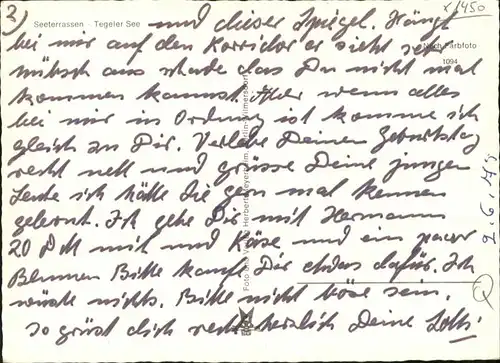 3)
Seeterrassen · Tegeler See
x 1450
und dieser Spiegel. Hängt
bei mir auf den Korridor er sieht sehr
Nach Farbfoto
1094
hübsch aus schade das Du nicht mal
kommen kannst. Aber wenn alles
bei mir in Ordnung ist komme ich
gleich an Dir. Verlebe Deinen Geburtstag
recht nett und grüsse Deine jungen
Leute ich hätte die gern mal kennen
gelernt. Ich gebe Dir mit Hermann
20 DM mit und Käse und ein paar
Blumen Bitte kauf Dir etwas dafür. Ich
wüste nichts. Bitte nicht böse sein.
so grüst dich recht herzlich Deine Lotti
Foto und Herbert Meyerheim, Berlin-Wilmersdorf
9.6.75